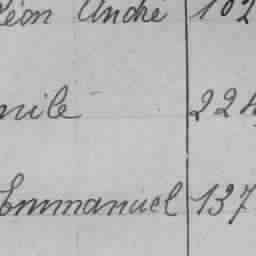 Léon André 102
mile 224
Emmanuel 137